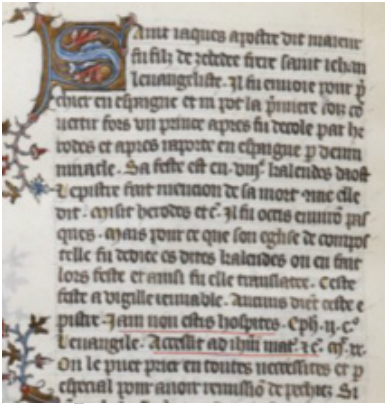 Saint iaques apostre dit maieur
fu filz de zebedee frere saint iehan
leuangeliste. Il fu enuoie pour p̄
chier en espaigne et ni pot la p̄miere foiz cō
uertir fors un prince apres fu decole par he
rodes et apres raporte en espaigne p̄ deuin
miracle. Sa feste est en .viij. kalendes daost
Lepistre fait mencion de sa mort
dit. Misit herodes etc̄. Il fu occis enuirō pas
ques. Mais pour ce que son eglise de compos
telle fu dediee es dites kalendes on en fait
lors feste et ainsi fu elle translatee. Ceste
feste a vigille ieunable. Aucuns diēt ceste e
pistre. Jam non estis hospites. Eph. ij. c°
Leuangile. Accessit ad ihm̄ mat̄. xx. c°.
On le puet prier en toutes necessites et p̄
especial pour auoir remissiō de pechiez Si